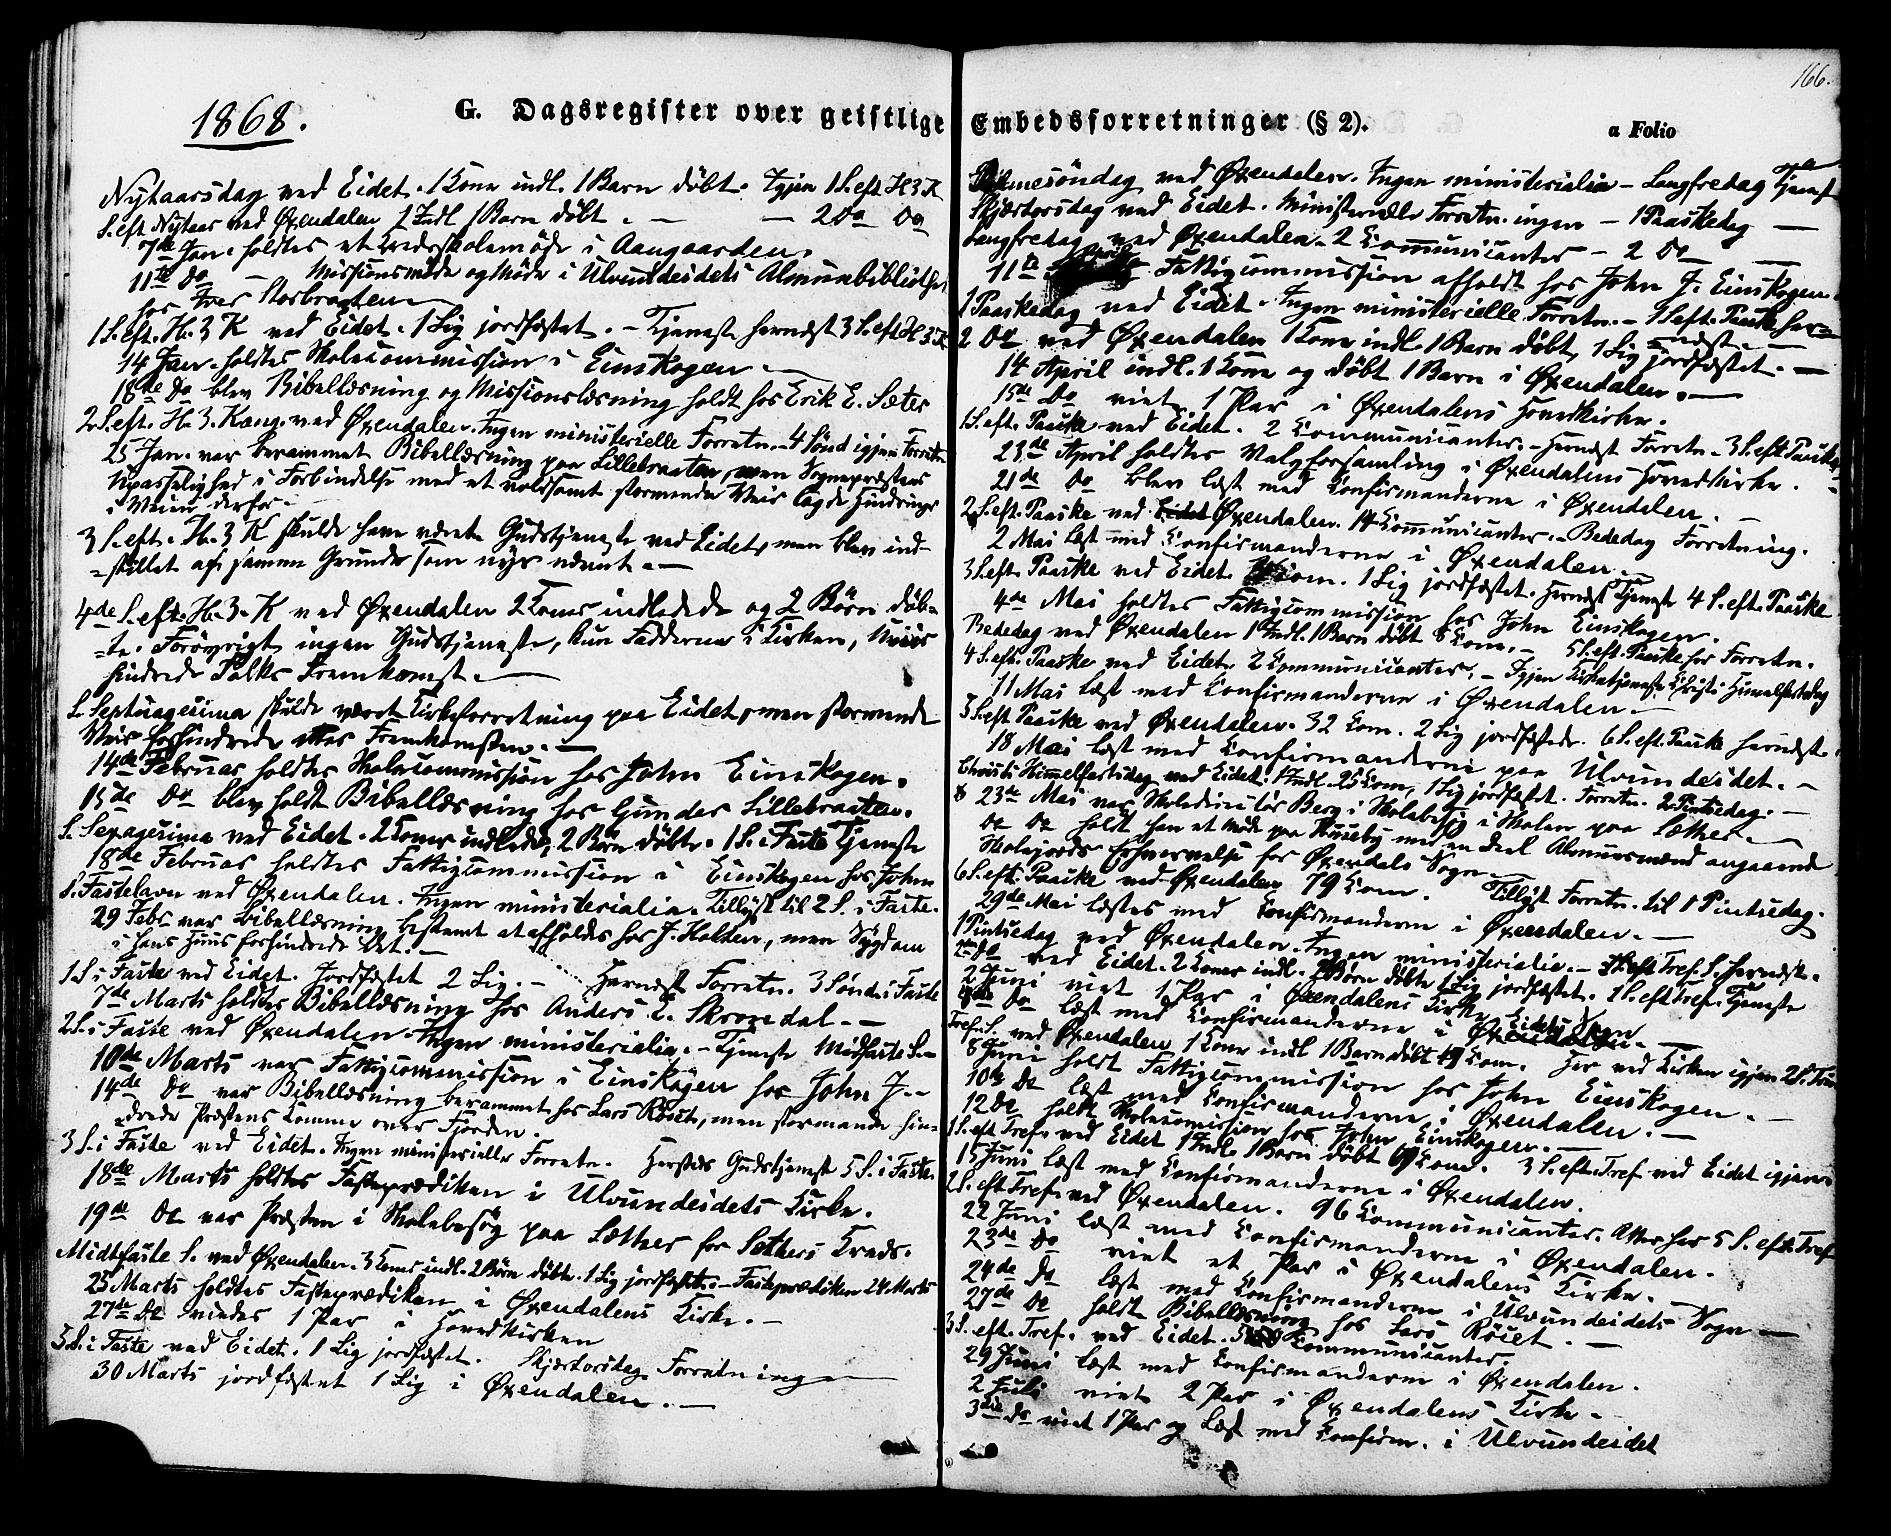 1868.
G. Dagsregister over geistlige
Nytaarsdag ved Eidet. 1 Kone indl. 1 Barn døbt. Igjen 1 S. eft. H 3 K
S. eft. Nytaar ved Øxendalen 1 Indl. 1 Barn døbt. — — 2 Do Do
7de Jan. holdtes et Kredsskolemøde i Aangaarden.
11te Do — Missionsmøde og Møde i Ulvundeidets Almuebibliothek
hos Iver Storbraaten
1 S. eft. H. 3 K ved Eidet. 1 Lig jordfæstet. — Tjeneste hernæst 3 S. eft. H 3 K
14 Jan. holdtes Skolecommission i Einskogen —
18de Do blev Bibellæsning og Missionslæsning holdt hos Erik E. Sæter
2 S. eft. H. 3 Kong. ved Øxendalen. Ingen ministerielle Forretn. 4 Sønd igjen Forretn
25 Jan. var berammet Bibellæsning paa Lillebraaten, men Sognepræstens
Upasselighed i Forbindelse med et voldsomt stormende Veir lagde Hindringer
i Veien derfor. —
3 S. eft. H. 3 K skulde have været Gudstjeneste ved Eidet, men blev ind-
-stillet af samme Grunde som nys nævnt. —
4de S. eft. H. 3. K ved Øxendalen 2 Koner indledede og 2 Børn døb-
-te. Forøvrigt ingen Gudstjeneste, kun Fadderne i Kirken, Veiret
hindrede Folks Fremkomst. —
S. Septuagesima skulde været Kirkeforretning paa Eidet, men stormende
Veir forhindrede Fremkomsten. —
14de Februar holdtes Skolecommission hos John Einskogen.
15de Do blev holdt Bibellæsning hos Gunder Lillebraaten.
S. Sexagesima ved Eidet. 2 Koner indledede, 2 Børn døbte. 1 S. i Faste Tjeneste
18de Februar holdtes Fattigcommission i Einskogen hos John
S. Fastelavn ved Øxendalen. Ingen ministerialia. Tillyst til 2 S. i Faste.
29 Febr var Bibellæsning bestemt at afholdes hos J. Holten, men Sygdom
i hans Huus forhindrede det. —
1 S. i Faste ved Eidet. Jordfæstet 2 Lig. — Hernæst Forretn. 3 Sønd. i Faste
7de Marts holdtes Bibellæsning hos Anders E. Skrondal. —
2 S. i Faste ved Øxendalen. Ingen ministerialia. — Tjeneste Midfaste S. —
10de Marts var Fattigcommission i Einskogen hos John J. —
14de Do var Bibellæsning berammet hos Lars Røiet, men stormende hin-
-drede Præstens Komme over Fjorden.
3 S. i Faste ved Eidet. Ingen ministerielle Forretn. Gudstjeneste 5 S. i Faste
18de Marts holdtes Fasteprædiken i Ulvundeidets Kirke.
19de Do var Præsten i Skolebesøg paa Sæther for Sæthers Kreds.
Midtfaste S. ved Øxendalen. 3 Koner indl. 2 Børn døbte. 1 Lig jordfæstet. — Fasteprædiken 24 Marts
25 Marts holdtes Fasteprædiken i Øxendalens Kirke. —
27de Do viedes 1 Par i Hovedkirken
5 S. i Faste ved Eidet. 1 Lig jordfæstet. Skjærtorsdag Forretning —
30 Marts jordfæstet 1 Lig i Øxendalen. —
166.
Embedsforretninger (§ 2).
a Folio
Palmesöndag ved Øxendalen. Ingen ministerialia — Langfredag Tjenest
Skjærtorsdag ved Eidet. Ministerielle Forretn. ingen — 1 Paaskedag —
Langfredag ved Øxendalen. 2 Communicanter — 2 Do —
11te April Fattigcommission afholdt hos John J. Einskogen.
1 Paaskedag ved Eidet. Ingen ministerielle Forretn. — 1 S. eft. Paaske her-
næst. —
2 Do ved Øxendalen 1 Kone indl. 1 Barn døbt, 1 Lig jordfæstet. —
14 April indl. 1 Kone og døbt 1 Barn i Øxendalen. —
15de Do viet 1 Par i Øxendalens Hovedkirke.
1 S. eft. Paaske ved Eidet. 2 Communicanter. — Hernæst Forretn. 3 S. eft. Paaske
23de April holdtes Valgforsamling i Øxendalens Hovedkirke. —
21de Do blev læst med Konfirmanderne i Øxendalen. —
2 S. eft. Paaske ved Eidet Øxendalen. 14 Communicanter. — Bededag Forretning.
2 Mai læst med Konfirmanderne i Øxendalen. —
3 S. eft. Paaske ved Eidet. Kom. 1 Lig jordfæstet. Hernæst Tjeneste 4 S. eft. Paaske
4de Mai holdtes Fattigcommission hos John Einskogen.
Bededag ved Øxendalen 1 Indl. 1 Barn døbt 8 Kom. — 5 S. eft. Paaske her Forretn.
4 S. eft. Paaske ved Eidet 2 Communicanter. — Igjen Kirketjeneste Christi Himmelfartsdag
11 Mai læst med Konfirmanderne i Øxendalen. —
5 S. eft Paaske ved Øxendalen. 32 Kom. 2 Lig jordfæstede. 6 S. eft. Paaske hernæst.
18 Mai læst med Konfirmanderne paa Ulvundeidet. —
Christi Himmelfartsdag ved Eidet. 1 Indl. 25 Kom, 1 Lig jordfæstet. Forretn. 2 Pintsedag. —
23de Mai var Skoledirecteur Berg i Skolebesøg i Skolen paa Sæther. —
Do Do holdt han et Møde paa Huseby med en Deel Almuesmænd angaaende
Skolejords Erhvervelse for Øxendals Sogn —
6 S. eft. Paaske ved Øxendalen 79 Kom. Tillyst Forretn. til 1 Pintsedag.
29de Mai læstes med Konfirmanderne i Øxendalen. —
1 Pintsedag ved Øxendalen. Ingen ministerialia. — Tref. S. hernæst.
2den Do ved Eidet. 2 Koner indl. 2 Børn døbte 1 Lig jordfæstet. 1 S. eft Tref. Tjeneste
2 Juni viet 1 Par i Øxendalens Kirke
Do læst med Konfirmanderne i Eidets Sogn
Tref. S. ved Øxendalen 1 Kone indl 1 Barn døbt 49 Kom. Her ved Kirken igjen 2 S. Trin
8 Juni holdt Fattigcommission hos John Einskogen. —
10de Do læst med Konfirmanderne i Øxendalen. —
12 Do holdt Skolecommission hos John Einskogen. —
1 S. eft Tref. ved Eidet 1 Indl. 1 Barn døbt 69 Kom. 3 S. eft. Tref ved Eidet igjen
15 Juni læst med Konfirmanderne i Øxendalen.
2 S. eft Tref. ved Øxendalen. 96 Communicanter. Atter her 5 S. eft. Tref
22 Juni læst med Konfirmanderne i Øxendalen.
23de Do viet et Par i Øxendalens Kirke. —
24de Do læst med Konfirmanderne i Ulvundeidets Sogn —
27de Do holdt Bibellæsning hos Lars Røiet. —
3 S. eft. Tref. ved Eidet. Communicanter.
29 Juni læst med Konfirmanderne i Øxendalen.
2 Juli viet 2 Par i Øxendalens Kirke. —
3die Do viet 1 Par og læst med Konfirm. i Ulvundeidet